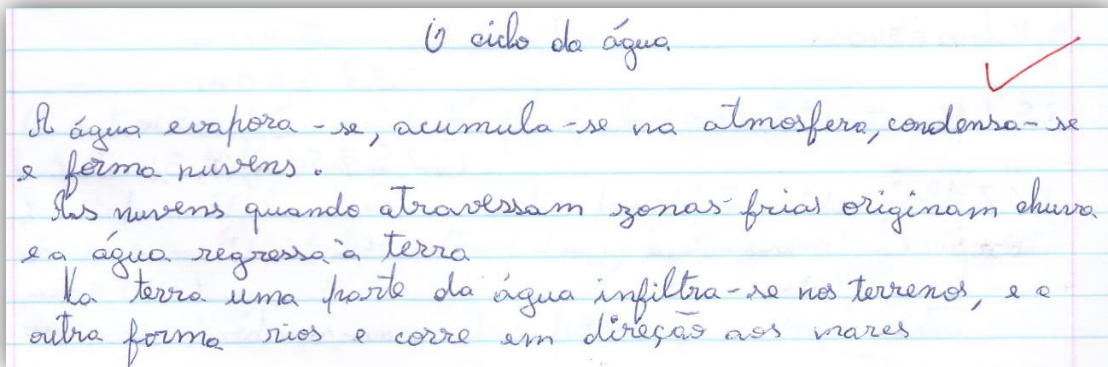 O ciclo da água
A água evapora-se, acumula-se na atmosfera, condensa-se
e forma nuvens.
As nuvens quando atravessam zonas frias originam chuva
e a água regressa à terra
Na terra uma parte da água infiltra-se nos terrenos, e a
outra forma rios e corre em direção aos mares